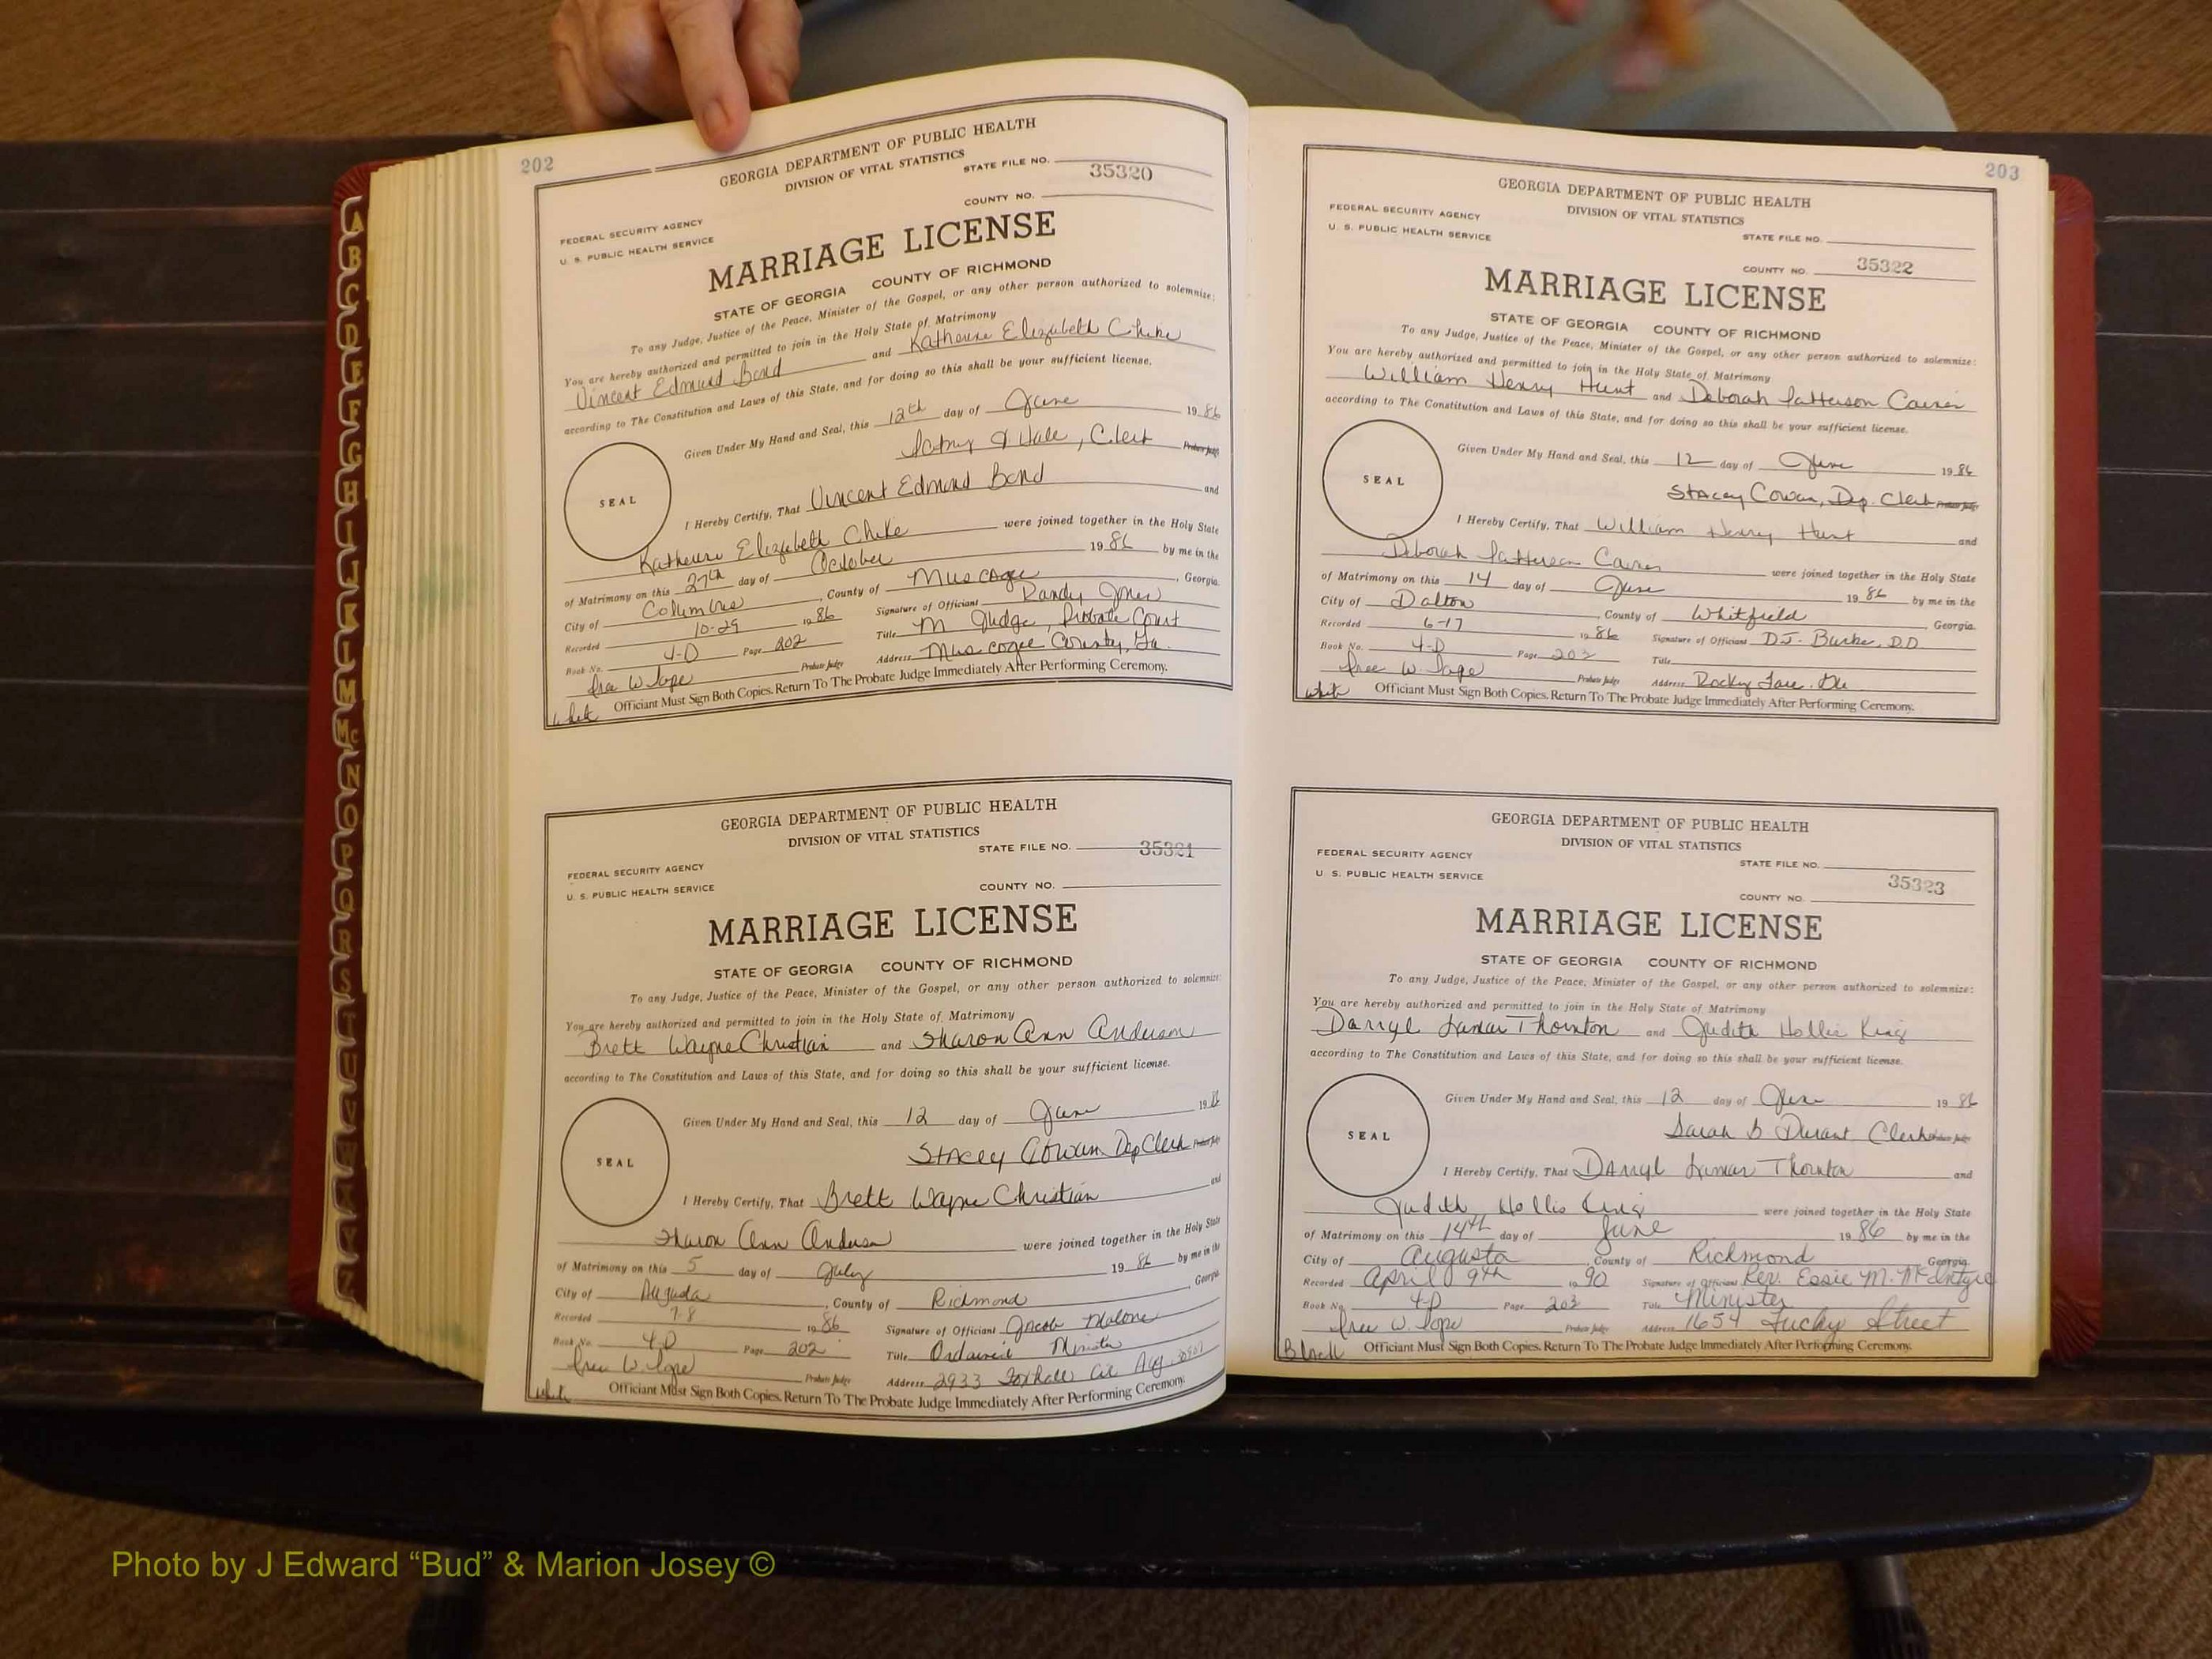 202
GEORGIA DEPARTMENT OF PUBLIC HEALTH
DIVISION OF VITAL STATISTICS
STATE FILE NO. 35320
COUNTY NO.
FEDERAL SECURITY AGENCY
U. S. PUBLIC HEALTH SERVICE
MARRIAGE LICENSE
STATE OF GEORGIA COUNTY OF RICHMOND
To any Judge, Justice of the Peace, Minister of the Gospel, or any other person authorized to solemnize:
You are hereby authorized and permitted to join in the Holy State of Matrimony
Vincent Edmund Bond and Katherine Elizabeth Chike
according to The Constitution and Laws of this State, and for doing so this shall be your sufficient license.
Given Under My Hand and Seal, this 12th day of June 1986
Hale, Clerk Probate Judge
SEAL
I Hereby Certify, That Vincent Edmund Bond and
Katherine Elizabeth Chike were joined together in the Holy State
of Matrimony on this 27th day of October 1986 by me in the
City of Columbus, County of Muscogee, Georgia.
Recorded 10-29 1986 Signature of Officiant Randy Jones
Book No. 4-D Page 202 Title Judge, Probate Court
W. Pope Probate Judge Address Muscogee County, Ga.
White Officiant Must Sign Both Copies. Return To The Probate Judge Immediately After Performing Ceremony.
GEORGIA DEPARTMENT OF PUBLIC HEALTH
DIVISION OF VITAL STATISTICS
STATE FILE NO. 35321
FEDERAL SECURITY AGENCY
U. S. PUBLIC HEALTH SERVICE
COUNTY NO.
MARRIAGE LICENSE
STATE OF GEORGIA COUNTY OF RICHMOND
To any Judge, Justice of the Peace, Minister of the Gospel, or any other person authorized to solemnize:
You are hereby authorized and permitted to join in the Holy State of Matrimony
Brett Wayne Christian and Sharon Ann Anderson
according to The Constitution and Laws of this State, and for doing so this shall be your sufficient license.
Given Under My Hand and Seal, this 12 day of June 1986
Stacey Cowan Dep Clerk Probate Judge
SEAL
I Hereby Certify, That Brett Wayne Christian and
Sharon Ann Anderson were joined together in the Holy State
of Matrimony on this 5 day of July 1986 by me in the
City of Augusta, County of Richmond Georgia
Recorded 7-8 1986 Signature of Officiant Jacob Malone
Book No. 4-D Page 202 Title Ordained Minister
W. Pope Probate Judge Address 2933 Foxhall Cir Aug.
White Officiant Must Sign Both Copies. Return To The Probate Judge Immediately After Performing Ceremony.
203
GEORGIA DEPARTMENT OF PUBLIC HEALTH
DIVISION OF VITAL STATISTICS
FEDERAL SECURITY AGENCY
U. S. PUBLIC HEALTH SERVICE
STATE FILE NO.
COUNTY NO. 35322
MARRIAGE LICENSE
STATE OF GEORGIA COUNTY OF RICHMOND
To any Judge, Justice of the Peace, Minister of the Gospel, or any other person authorized to solemnize:
You are hereby authorized and permitted to join in the Holy State of Matrimony
William Henry Hunt and Deborah Patterson
according to The Constitution and Laws of this State, and for doing so this shall be your sufficient license.
Given Under My Hand and Seal, this 12 day of June 1986
Stacey Cowan, Dep. Clerk Probate Judge
SEAL
I Hereby Certify, That William Henry Hunt and
Deborah Patterson were joined together in the Holy State
of Matrimony on this 14 day of June 1986 by me in the
City of Dalton, County of Whitfield, Georgia.
Recorded 6-17 1986 Signature of Officiant D.J. Burke, D.D.
Book No. 4-D Page 203 Title
W. Pope Probate Judge Address Rocky Face, Ga
White Officiant Must Sign Both Copies. Return To The Probate Judge Immediately After Performing Ceremony.
GEORGIA DEPARTMENT OF PUBLIC HEALTH
DIVISION OF VITAL STATISTICS
FEDERAL SECURITY AGENCY
U. S. PUBLIC HEALTH SERVICE
STATE FILE NO.
35323
COUNTY NO.
MARRIAGE LICENSE
STATE OF GEORGIA COUNTY OF RICHMOND
To any Judge, Justice of the Peace, Minister of the Gospel, or any other person authorized to solemnize:
You are hereby authorized and permitted to join in the Holy State of Matrimony
Darryl Lamar Thornton and Judith Hollis King
according to The Constitution and Laws of this State, and for doing so this shall be your sufficient license.
Given Under My Hand and Seal, this 12 day of June 1986
Sarah B Durant Clerk Probate Judge
SEAL
I Hereby Certify, That Darryl Lamar Thornton and
Judith Hollis King were joined together in the Holy State
of Matrimony on this 14th day of June 1986 by me in the
City of Augusta, County of Richmond Georgia.
Recorded April 9th 1990 Signature of Officiant Rev. Essie M. McIntyre
Book No. 4-D Page 203 Title Minister
W. Pope Probate Judge Address 1654 Luckey Street
Black Officiant Must Sign Both Copies. Return To The Probate Judge Immediately After Performing Ceremony.
A
B
C
D
E
F
G
H
I
J
K
L
M
Mc
N
O
P
Q
R
S
T
U
V
W
X
Y
Z
Photo by J Edward “Bud” & Marion Josey ©